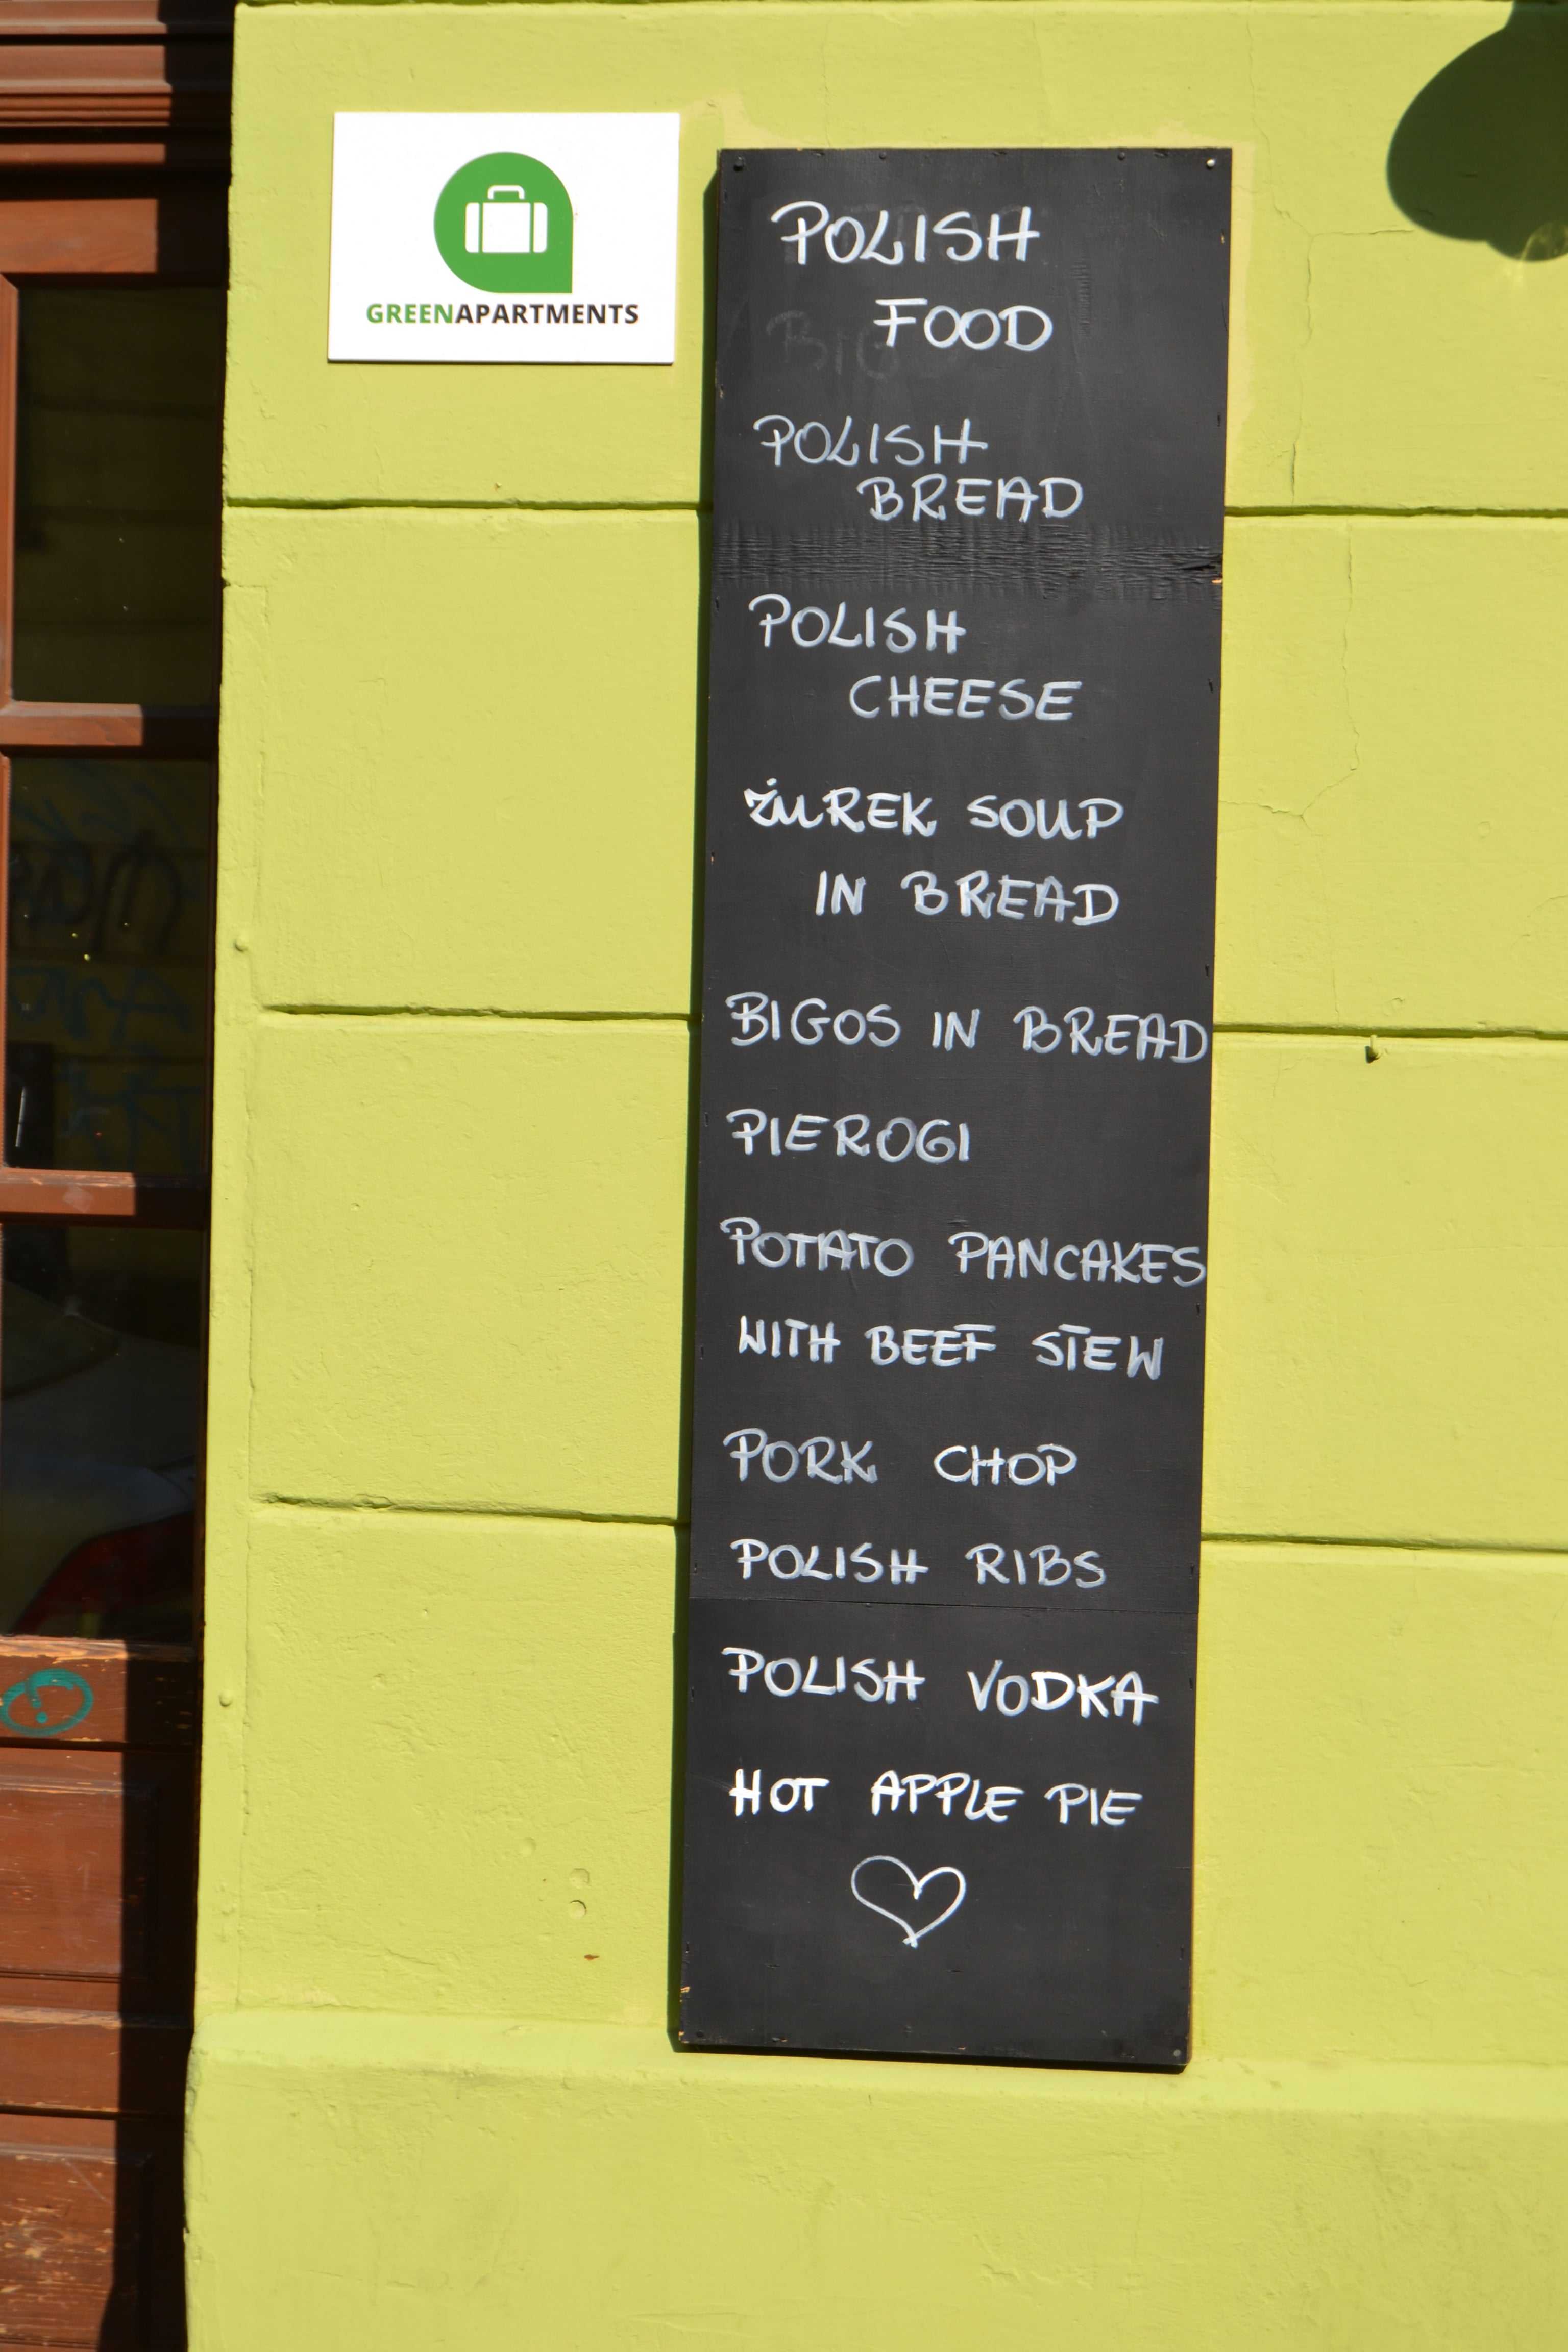 GREENAPARTMENTS
POLISH
FOOD
POLISH
BREAD
POLISH
CHEESE
ŻUREK SOUP
IN BREAD
BIGOS IN BREAD
PIEROGI
POTATO PANCAKES
WITH BEEF STEW
PORK CHOP
POLISH RIBS
POLISH VODKA
HOT APPLE PIE